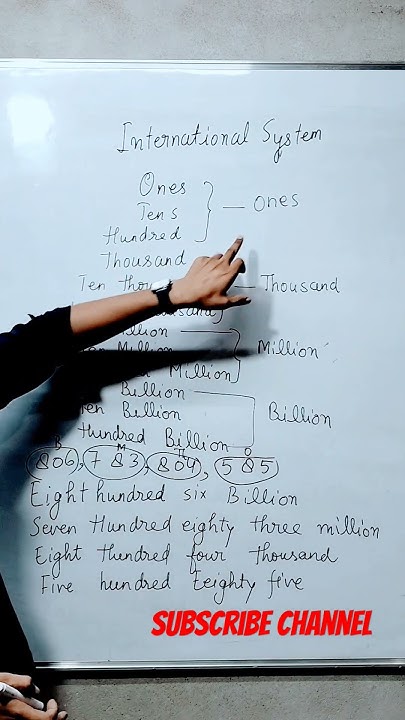 International System
Ones
Tens
Hundred
— Ones
Thousand
Ten
— Thousand
Million
Million
Million
Billion
Ten Billion
Hundred Billion
Billion
B M Th O
806, 783, 804, 585
Eight hundred six Billion
Seven Hundred eighty three million
Eight Hundred four thousand
Five hundred Eeighty five
SUBSCRIBE CHANNEL